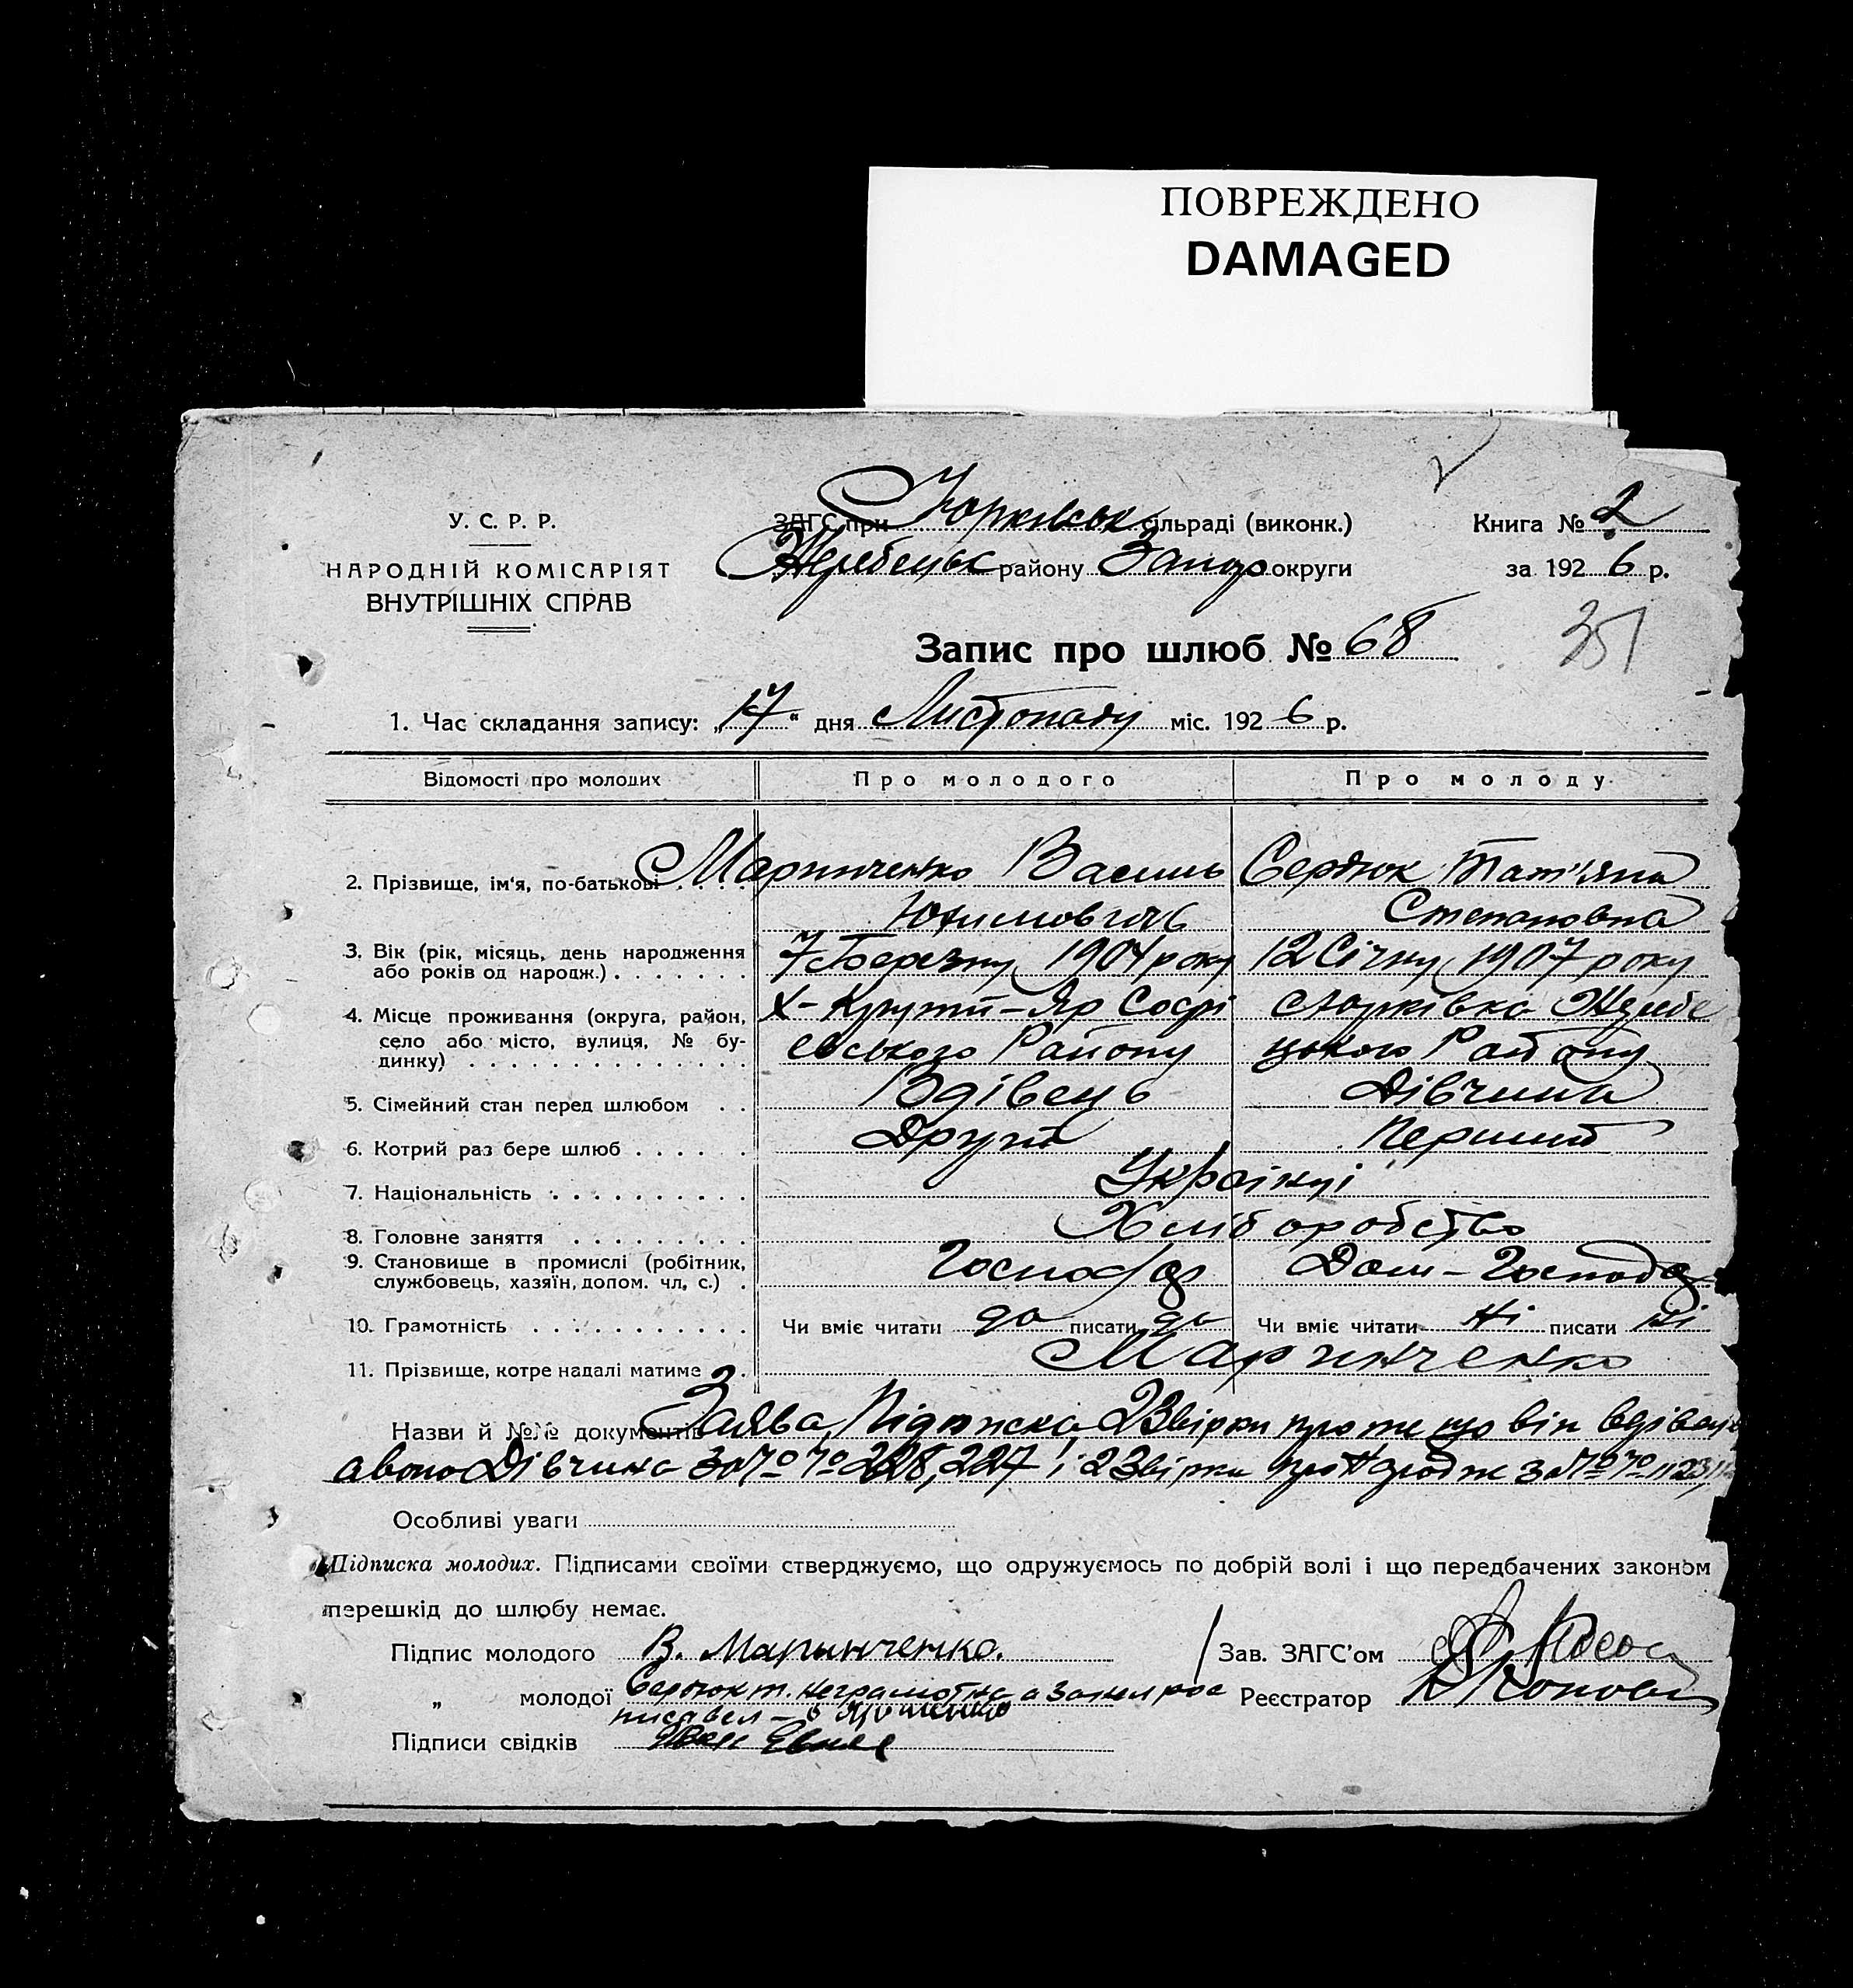 ПОВРЕЖДЕНО
DAMAGED
У. С. Р. Р.
НАРОДНІЙ КОМІСАРІЯТ
ВНУТРІШНІХ СПРАВ
ЗАГС при Юрківськ сільраді (виконк.)
Жеребецьк району Запор округи
Книга № 2
за 1926 р.
Запис про шлюб № 68
351
1. Час складання запису: „17“ дня Листопаду міс. 1926 р.
Відомості про молодих Про молодого Про молоду
2. Прізвище, ім'я, по-батькові . . . . Маринченко Василь Сердюк Тат'яна
Юхимович Степановна
3. Вік (рік, місяць, день народження або років од народж.) . . . . . . . 7 Березня 1904 року 12 Січня 1907 року
4. Місце проживання (округа, район, село або місто, вулиця, № будинку) . . . . . . . . . . . . . . Х-Крутий-Яр Софі Юрківка Жеребе
ївського Району цького Району
5. Сімейний стан перед шлюбом . . Вдівець Дівчина
6. Котрий раз бере шлюб . . . . . . Другий Перший
7. Національність . . . . . . . . . . Українці
8. Головне заняття . . . . . . . . . Хліборобство
9. Становище в промислі (робітник, службовець, хазяїн, допом. чл. с.) . Господар Дом-Господар
10. Грамотність . . . . . . . . . . . Чи вміє читати да писати да Чи вміє читати Ні писати Ні
11. Прізвище, котре надалі матиме . . Маринченко
Назви й №№ документів Заява, Підписка, 2 Звірки про те що він вдівець
а вона Дівчина за №№ 228, 227 і 2 Звірки про Народж за №№
Особливі уваги
Підписка молодих. Підписами своїми стверджуємо, що одружуємось по добрій волі і що передбачених законом
перешкід до шлюбу немає.
Підпис молодого В. Маринченко.
„ молодої Сердюк т. неграмотна а за нея рос
писався
Підписи свідків
Зав. ЗАГС'ом
Реєстратор